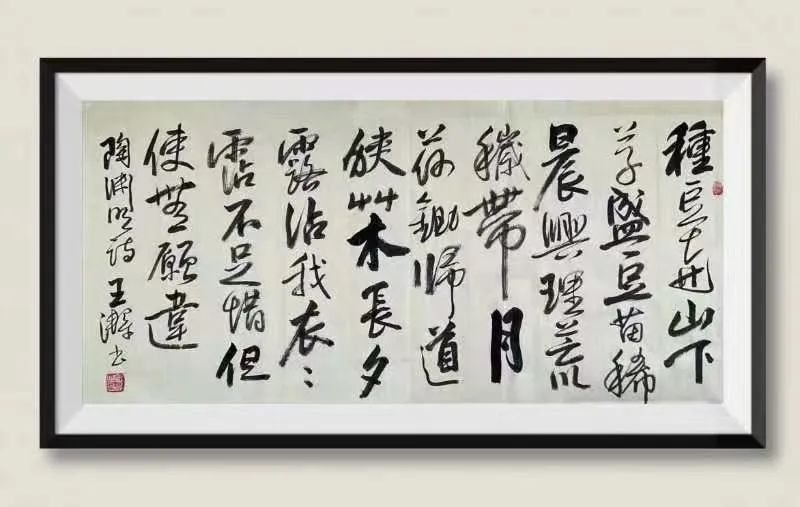 種豆南山下
草盛豆苗稀
晨興理荒
穢帶月
荷鋤歸道
狹艸木長夕
露沾我衣〻
霑不足惜但
使無願違
陶淵明詩 王澤書